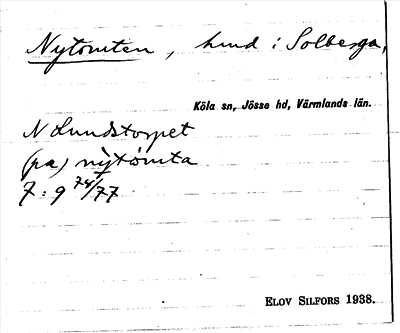 Nytomten, hmd i Solberga,
Köla sn, Jösse hd, Värmlands län.
N Lundstorpet
(pa) nỳtòmta
7:9 74/77
ELOV SILFORS 1938.